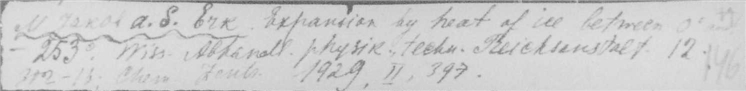 M Jakob a. S. Erk. Expansion by heat of ice between 0° 
- 253°. Wiss. Abhandl. physik. techn. Reichsanstalt. 12
302-16; Chem Zentr. 1929, II, 397.